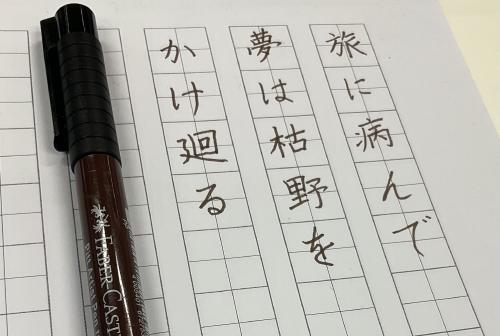 旅に病んで
夢は枯野を
かけ廻る
FABER CAST